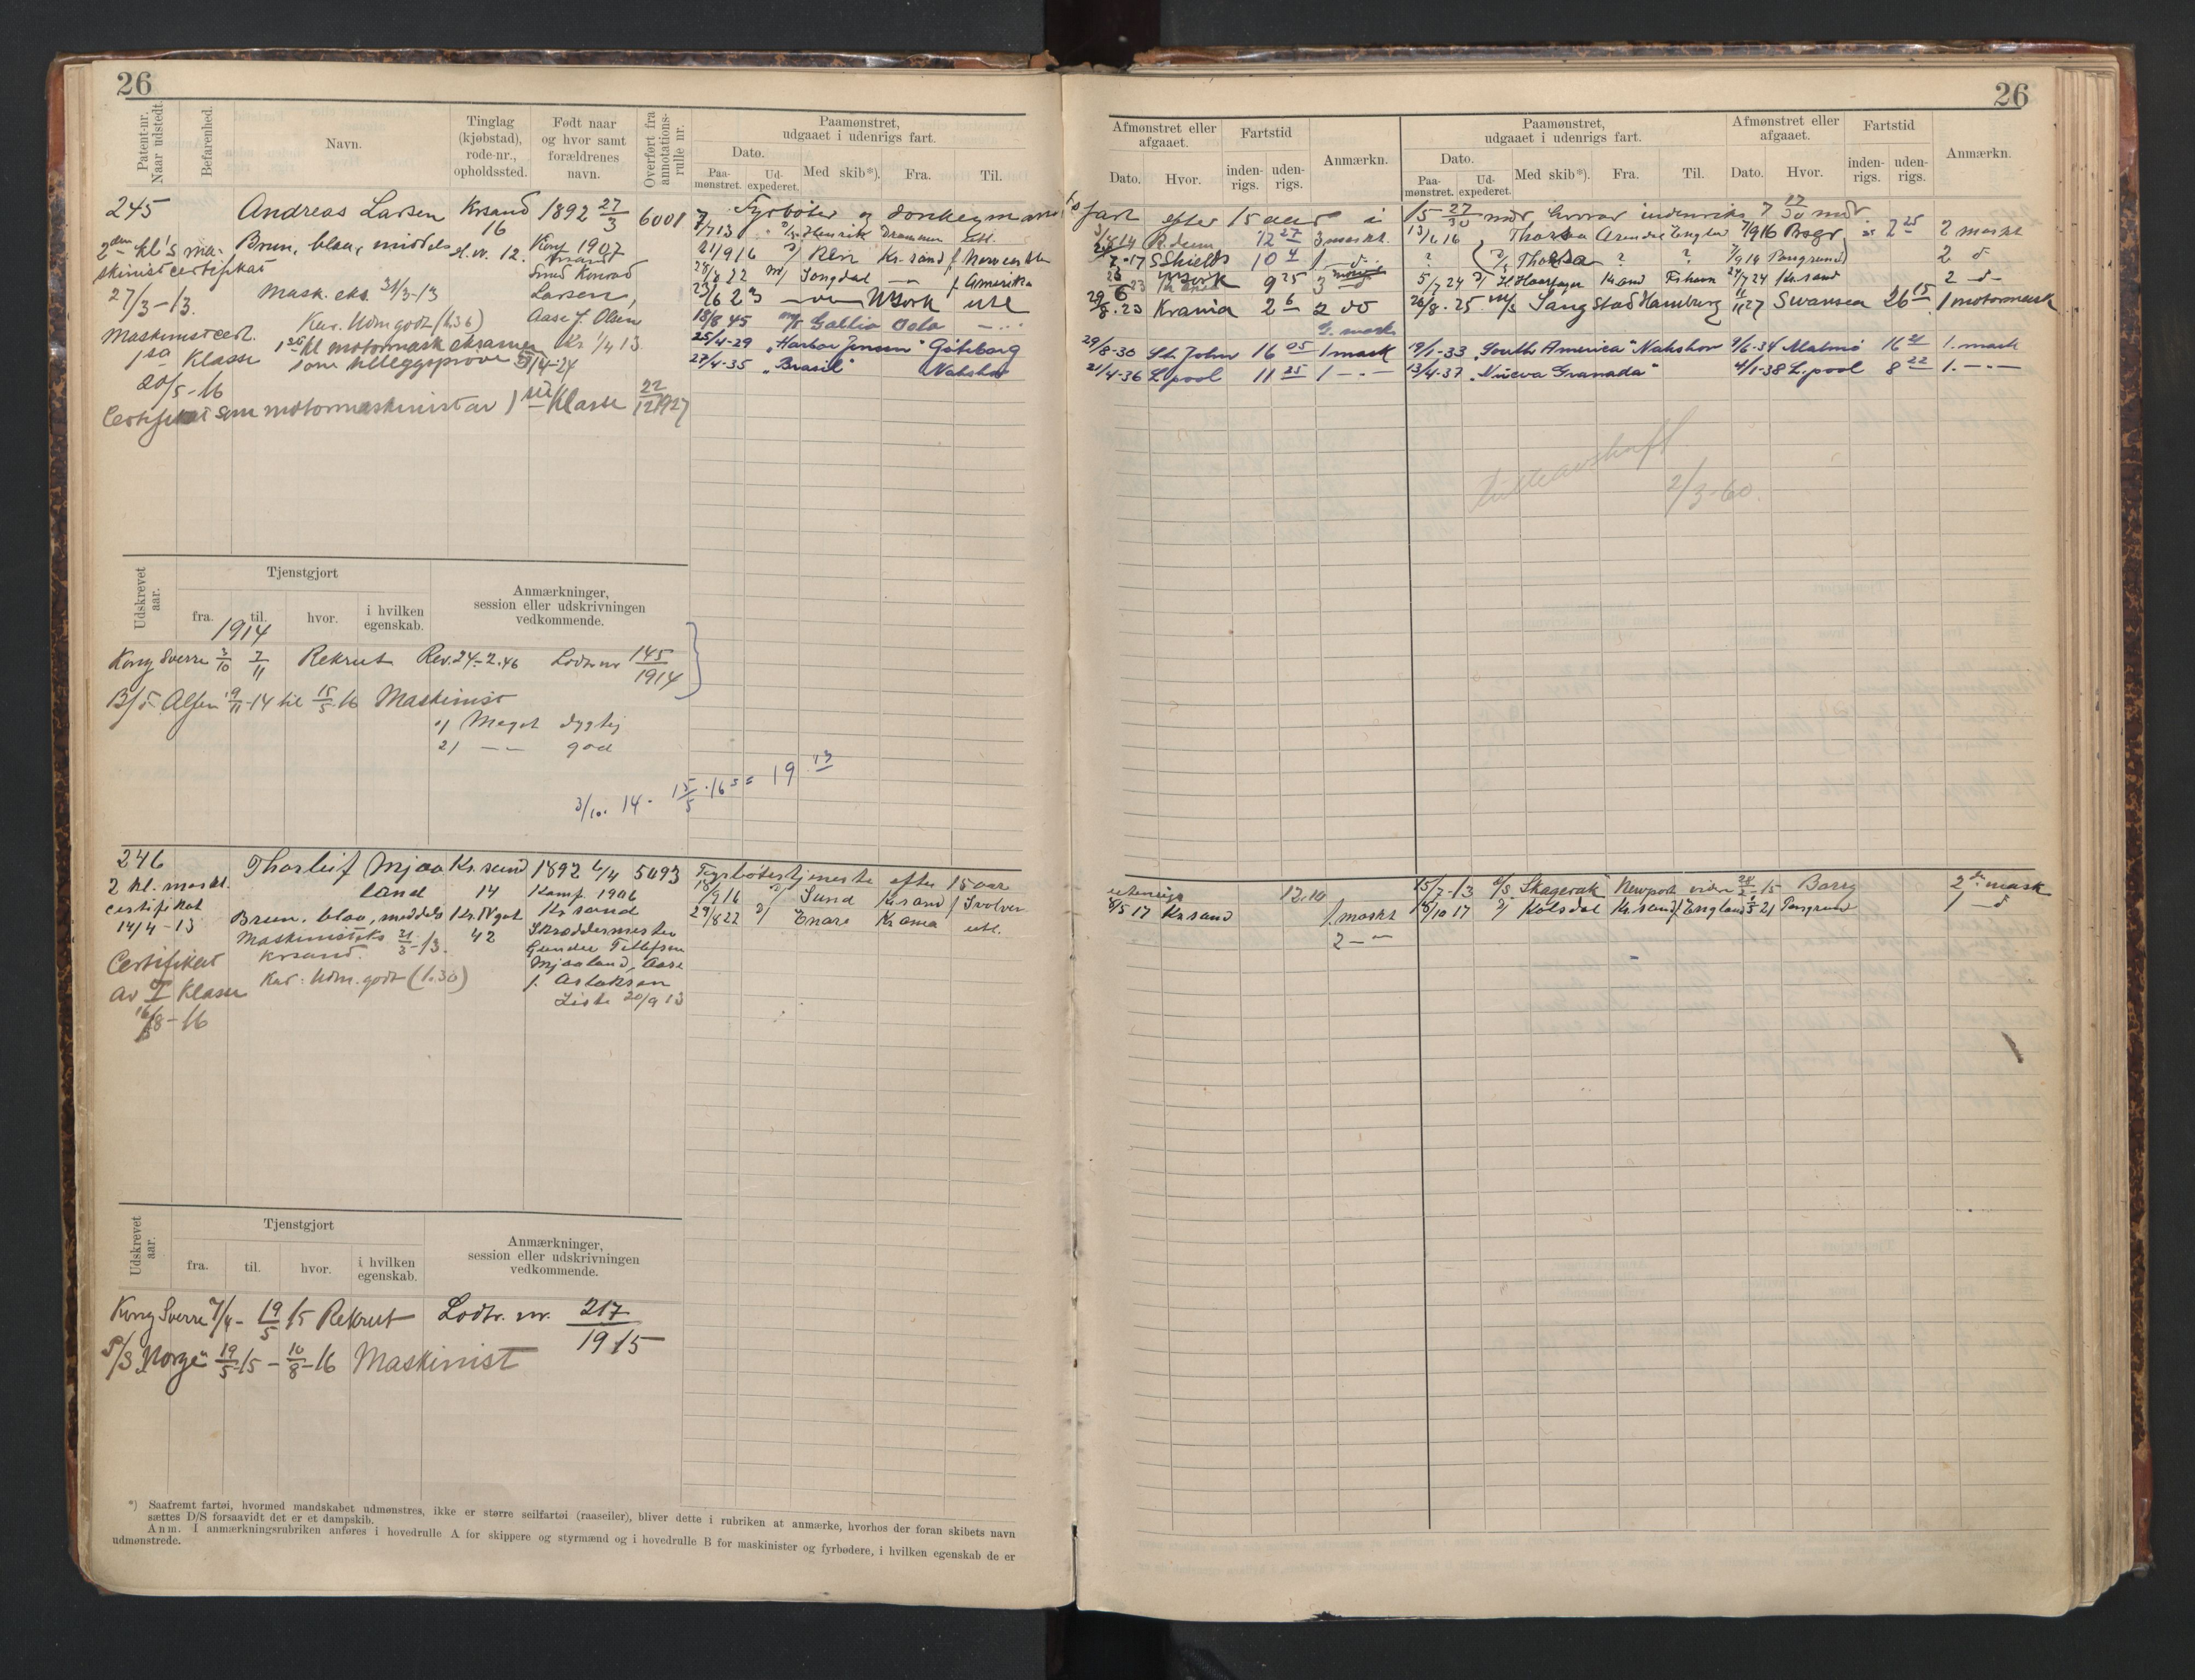 26
Patent-nr. Naar udstedt.
Befarenhed.
Navn.
Tinglag (kjøbstad), rode-nr., opholdssted.
Født naar og hvor samt forældrenes navn.
Overført fra annotations-rulle nr.
Paamønstret, udgaaet i udenrigs fart.
Dato.
Paa-mønstret.
Ud-expederet.
Med skib*).
Fra.
Til.
245
Andreas Larsen
Krsand
16
1892 27/3
6001
2den kl's ma-
skinistcertifikat
27/3-13.
Brun, blaa, middels
Konf 1907
Krsand
Smed Konrad
Larsen,
Aase J. Olsen
Mask. eks. 31/3-13
Kar. Udm godt (1.36)
Kr 1/4 13
Maskinistcert.
1ste Klasse
20/5-16
1ste kl motormask eksamen
som tilleggsprøve 28/4-24
Certifikat som motormaskinist av 1ste Klasse 22/12 1927
Fyrbøter og donkeyman
8/7 13 Henrik Drammen Utl.
21/9 16 Rein Kr.sand
28/8 22 Songdal f Amerika
23/6 23 NYork utl
18/8 45 Gallia Oslo
25/4-29 „Harbor Jensen“ Göteborg
27/4-35 „Brasil“ Nakskov
Udskrevet aar.
Tjenstgjort
fra.
til.
hvor.
i hvilken egenskab.
Anmærkninger, session eller udskrivningen vedkommende.
1914
Kong Sverre 3/10 7/11 Rekrut Rev. 24-2.46 Lodtr nr 145/1914
Alfen 19/11-14 til 15/5-16 Maskinist
1) Meget dygtig
2) -- god
3/10. 14 - 15/5.16 = 19 13
246
2 kl. maskt.
certifikat
14/4-13
Certifikat
av I Klasse
16/8-16
Thorleif Mjaa
land
Kr.sand
14
1892 6/4
5093
Konf. 1906
Kr sand
Skræddermester
Gunder Tellefsen
Mjaaland, Aase
f. Aslaksen
Liste 20/9 13
Brun, blaa, middels
42
Maskinisteks 31/3-13.
Krsand.
Kar: Udm. godt (1.30)
Fyrbøtertjeneste efter 15 aar
18/9 16 Sund Kr sand
29/8 22 Enare Krania utl.
Udskrevet aar.
Tjenstgjort
fra.
til.
hvor.
i hvilken egenskab.
Anmærkninger, session eller udskrivningen vedkommende.
Kong Sverre 7/4 - 19/5 15 Rekrut Lodtr. nr. 217/1915
P/S „Norge“ 19/5-15 - 10/8-16 Maskinist
*) Saafremt fartøi, hvormed mandskabet udmønstres, ikke er større seilfartøi (raaseiler), bliver dette i rubriken at anmærke, hvorhos der foran skibets navn
sættes D/S forsaavidt det er et dampskib.
Anm. I anmærkningsrubriken anføres i hovedrulle A for skippere og styrmænd og i hovedrulle B for maskinister og fyrbødere, i hvilken egenskab de er
udmønstrede.
26
Afmønstret eller afgaaet.
Dato.
Hvor.
Fartstid
inden-rigs.
uden-rigs.
Anmærkn.
Paamønstret, udgaaet i udenrigs fart.
Dato.
Paa-mønstret.
Ud-expederet.
Med skib*).
Fra.
Til.
Afmønstret eller afgaaet.
Dato.
Hvor.
Fartstid
inden-rigs.
uden-rigs.
Anmærkn.
fart efter 15 aar i 15 27/30 mdr hvorav indenriks 7 17/30 mdr
R.dam 12 27 3 maskt.
Thorsa 7 25 2 maskt
S Shields 10 4
? Thorsa ? ? Porsgrund 2 d
NYork 9 25 3
5/7 24 Kr.sand 24/7 24 Kr sand 2 -d-
29/8.23 Krania 2 6 2 do
26/8.25 M/s Sangstad Hamburg Swansea 26 15 1 motormask
29/8-30 St. John 16 05 1 mask
19/1-33 „South America“ Nakskov 9/6-34 Malmö 16 21 1. mask
21/4-36 L.pool 11 25 1 -.-
13/4-37 „Nueva Granada“ 4/1-38 L.pool 8 22 1. -.-
2/3-60.
utenrigs 12.10
8/5 17 Kr.sand 1. maskt
2 --
15/7-13 Skagerak Newport 28/2-15 Barry 2den mask
18/10 17 Kolsdal Kr.sand England 21 Porsgrund 1 -d